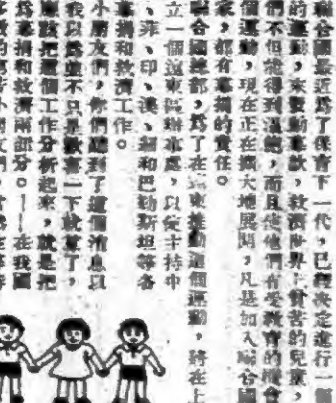 聯合國最近爲了保育下一代，已經決定進行一個
的運動，來發動募款，救濟世界上貧苦的兒童，
們不但能得到溫飽，而且使他們有受教育的機會
個運動，現在正在擴大地展開，凡是加入聯合國
家，都有募捐的責任。
聯合國總部，爲了在遠東推動這個運動，將在上
立一個遠東區辦事處，以便主持中
、菲、印、澳、緬和巴勒斯坦等各
募捐和救濟工作。
小朋友們，你們聽到了這個消息以
我以爲並不只是歡喜一下就算了，
應該把這個工作分析起來，就是把
爲募捐和救濟兩部分。——在我國